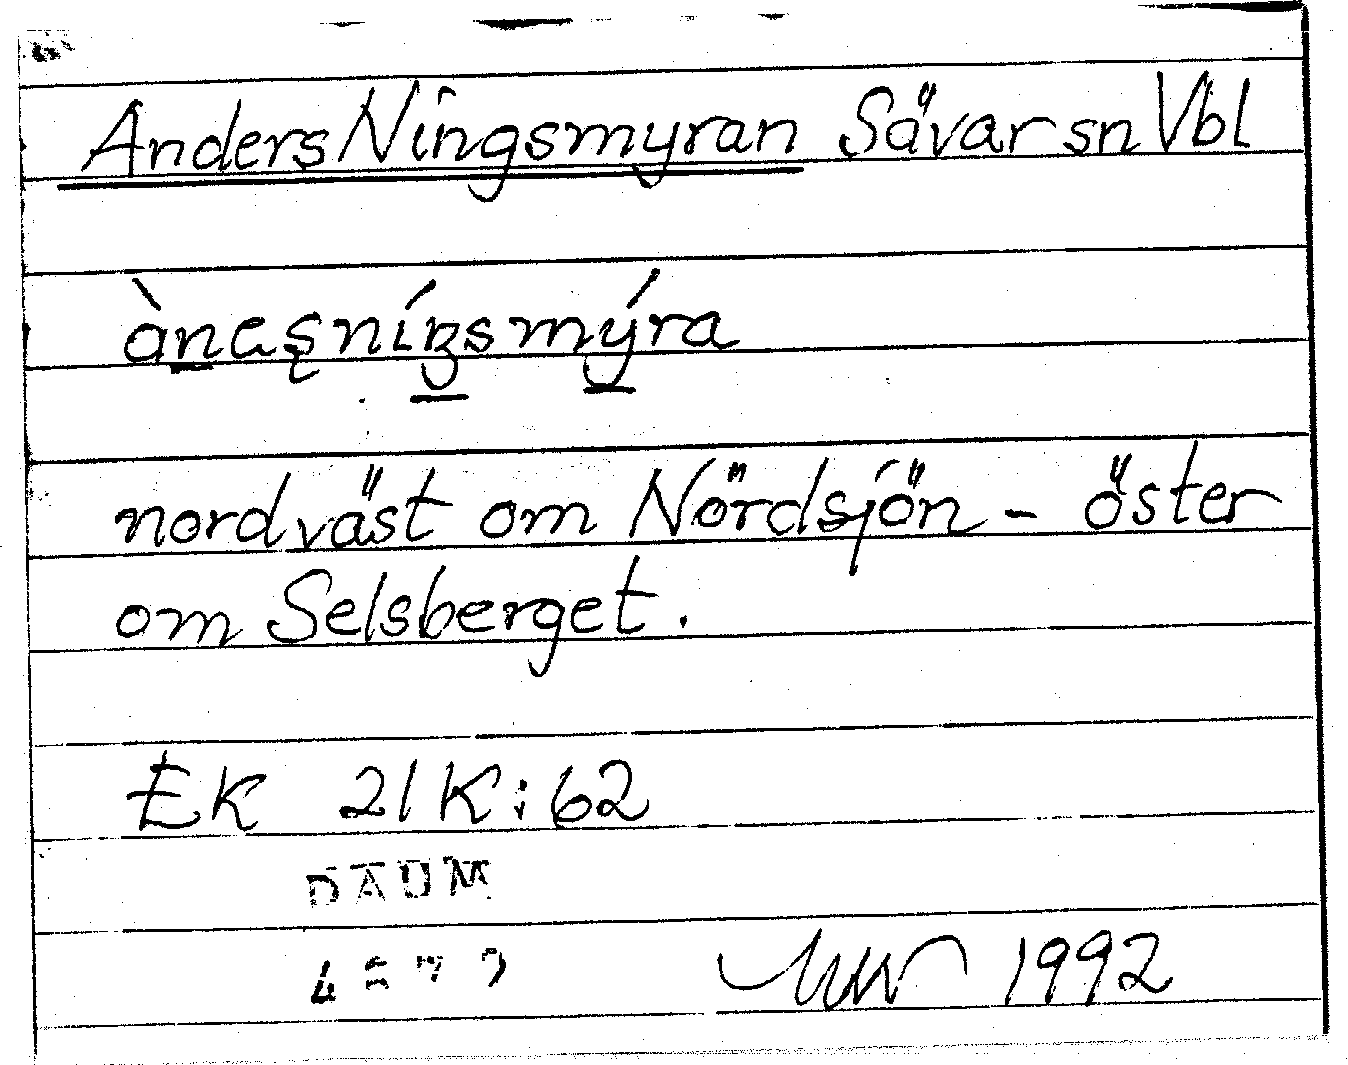 Anders Ningsmyran Sävar sn Vbl
nordväst om Nördsjön - öster
om Selsberget.
EK 21K:62
DAUM
1992